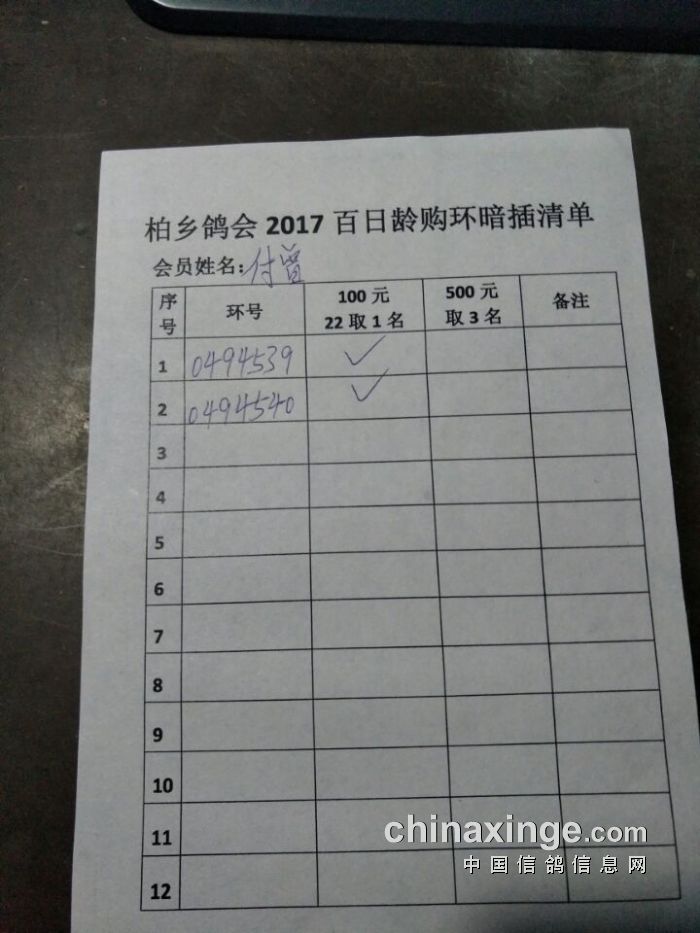 柏乡鸽会2017百日龄购环暗插清单
会员姓名:付曾
序号 环号 100元 22取1名 500元 取3名 备注
1 0494539 ✓
2 0494540 ✓
3
4
5
6
7
8
9
10
11
12
chinaxinge.com
中国信鸽信息网